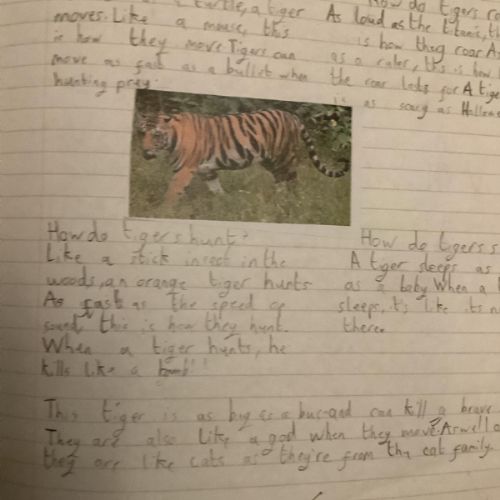 turtle, a tiger
moves. Like a mouse, this
is how they move. Tigers can
move as fast as a bullet when
hunting prey.
How do tigers
As loud as the titanic,
is how they roar. A
as a ruler, this is how
the roar lasts for A
is as scary as
How do tigers hunt?
Like a stick insect in the
woods, an orange tiger hunts
As fast as the speed of
sound, this is how they hunt.
When a tiger hunts, he
kills like a bomb!
How do tigers
A tiger sleeps as
as a baby. When a
sleeps, it's like its
there.
This tiger is as big as a bus and can kill a brave
They are also like a god when they move. As well
they are like cats as they're from the cat family.